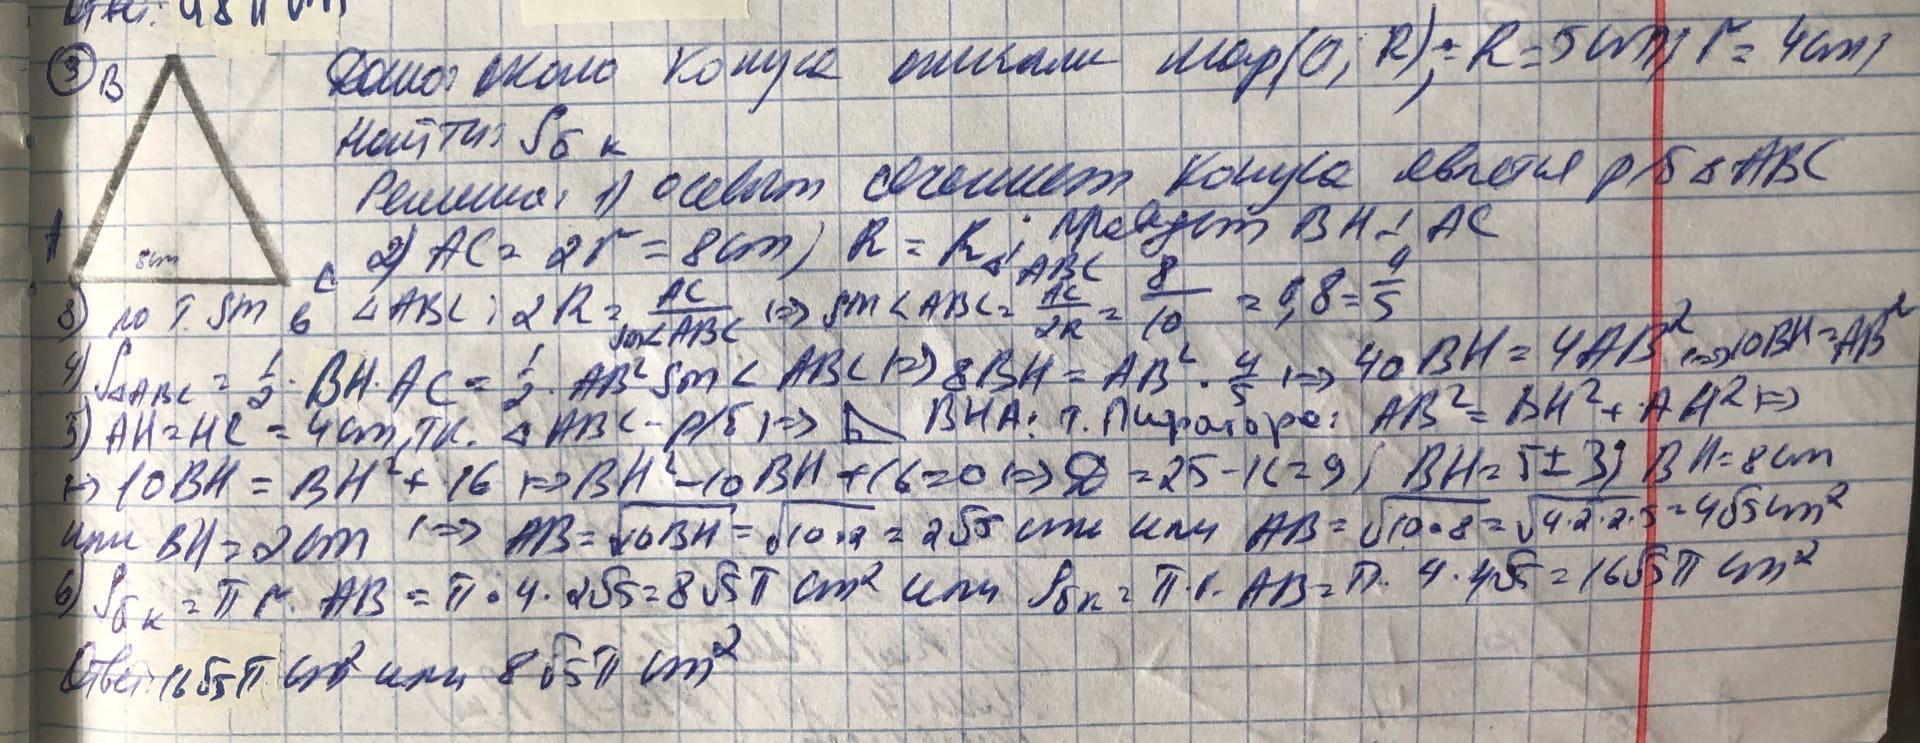 Ответ: 48π см
③ B Дано: около конуса описали шар(O; R); R = 5 cm; r = 4 cm;
Найти: Sб к
Решение: 1) осевым сечением конуса является р/б △ABC
A 8cm C 2) AC = 2r = 8 cm; R = R△ABC; проведём BH ⊥ AC
3) по т. sin в △ABC: 2R = AC/sin<ABC |=> sin<ABC = AC/2R = 8/10 = 0,8 = 4/5
4) S△ABC = 1/2 · BH · AC = 1/2 · AB² sin<ABC |=> 8BH = AB² · 4/5 |=> 40BH = 4AB² |=> 10BH = AB²
5) AH = HC = 4 cm, т.к. △ABC - р/б |=> ◺ BHA: т. Пифагора: AB² = BH² + AH² |=>
|=> 10BH = BH² + 16 |=> BH² - 10BH + 16 = 0 |=> D = 25 - 16 = 9; BH = 5 ± 3; BH = 8 cm
или BH = 2 cm |=> AB = √10BH = √10·2 = 2√5 cm или AB = √10·8 = √4·2·2·5 = 4√5 cm²
6) Sб к = π r · AB = π · 4 · 2√5 = 8√5π cm² или Sб к = π · r · AB = π · 4 · 4√5 = 16√5π cm²
Ответ: 16√5π cm² или 8√5π cm²